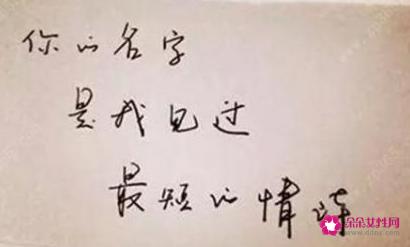 你的名字
是我见过
最短的情诗
朵朵女性网
www.ddnx.com